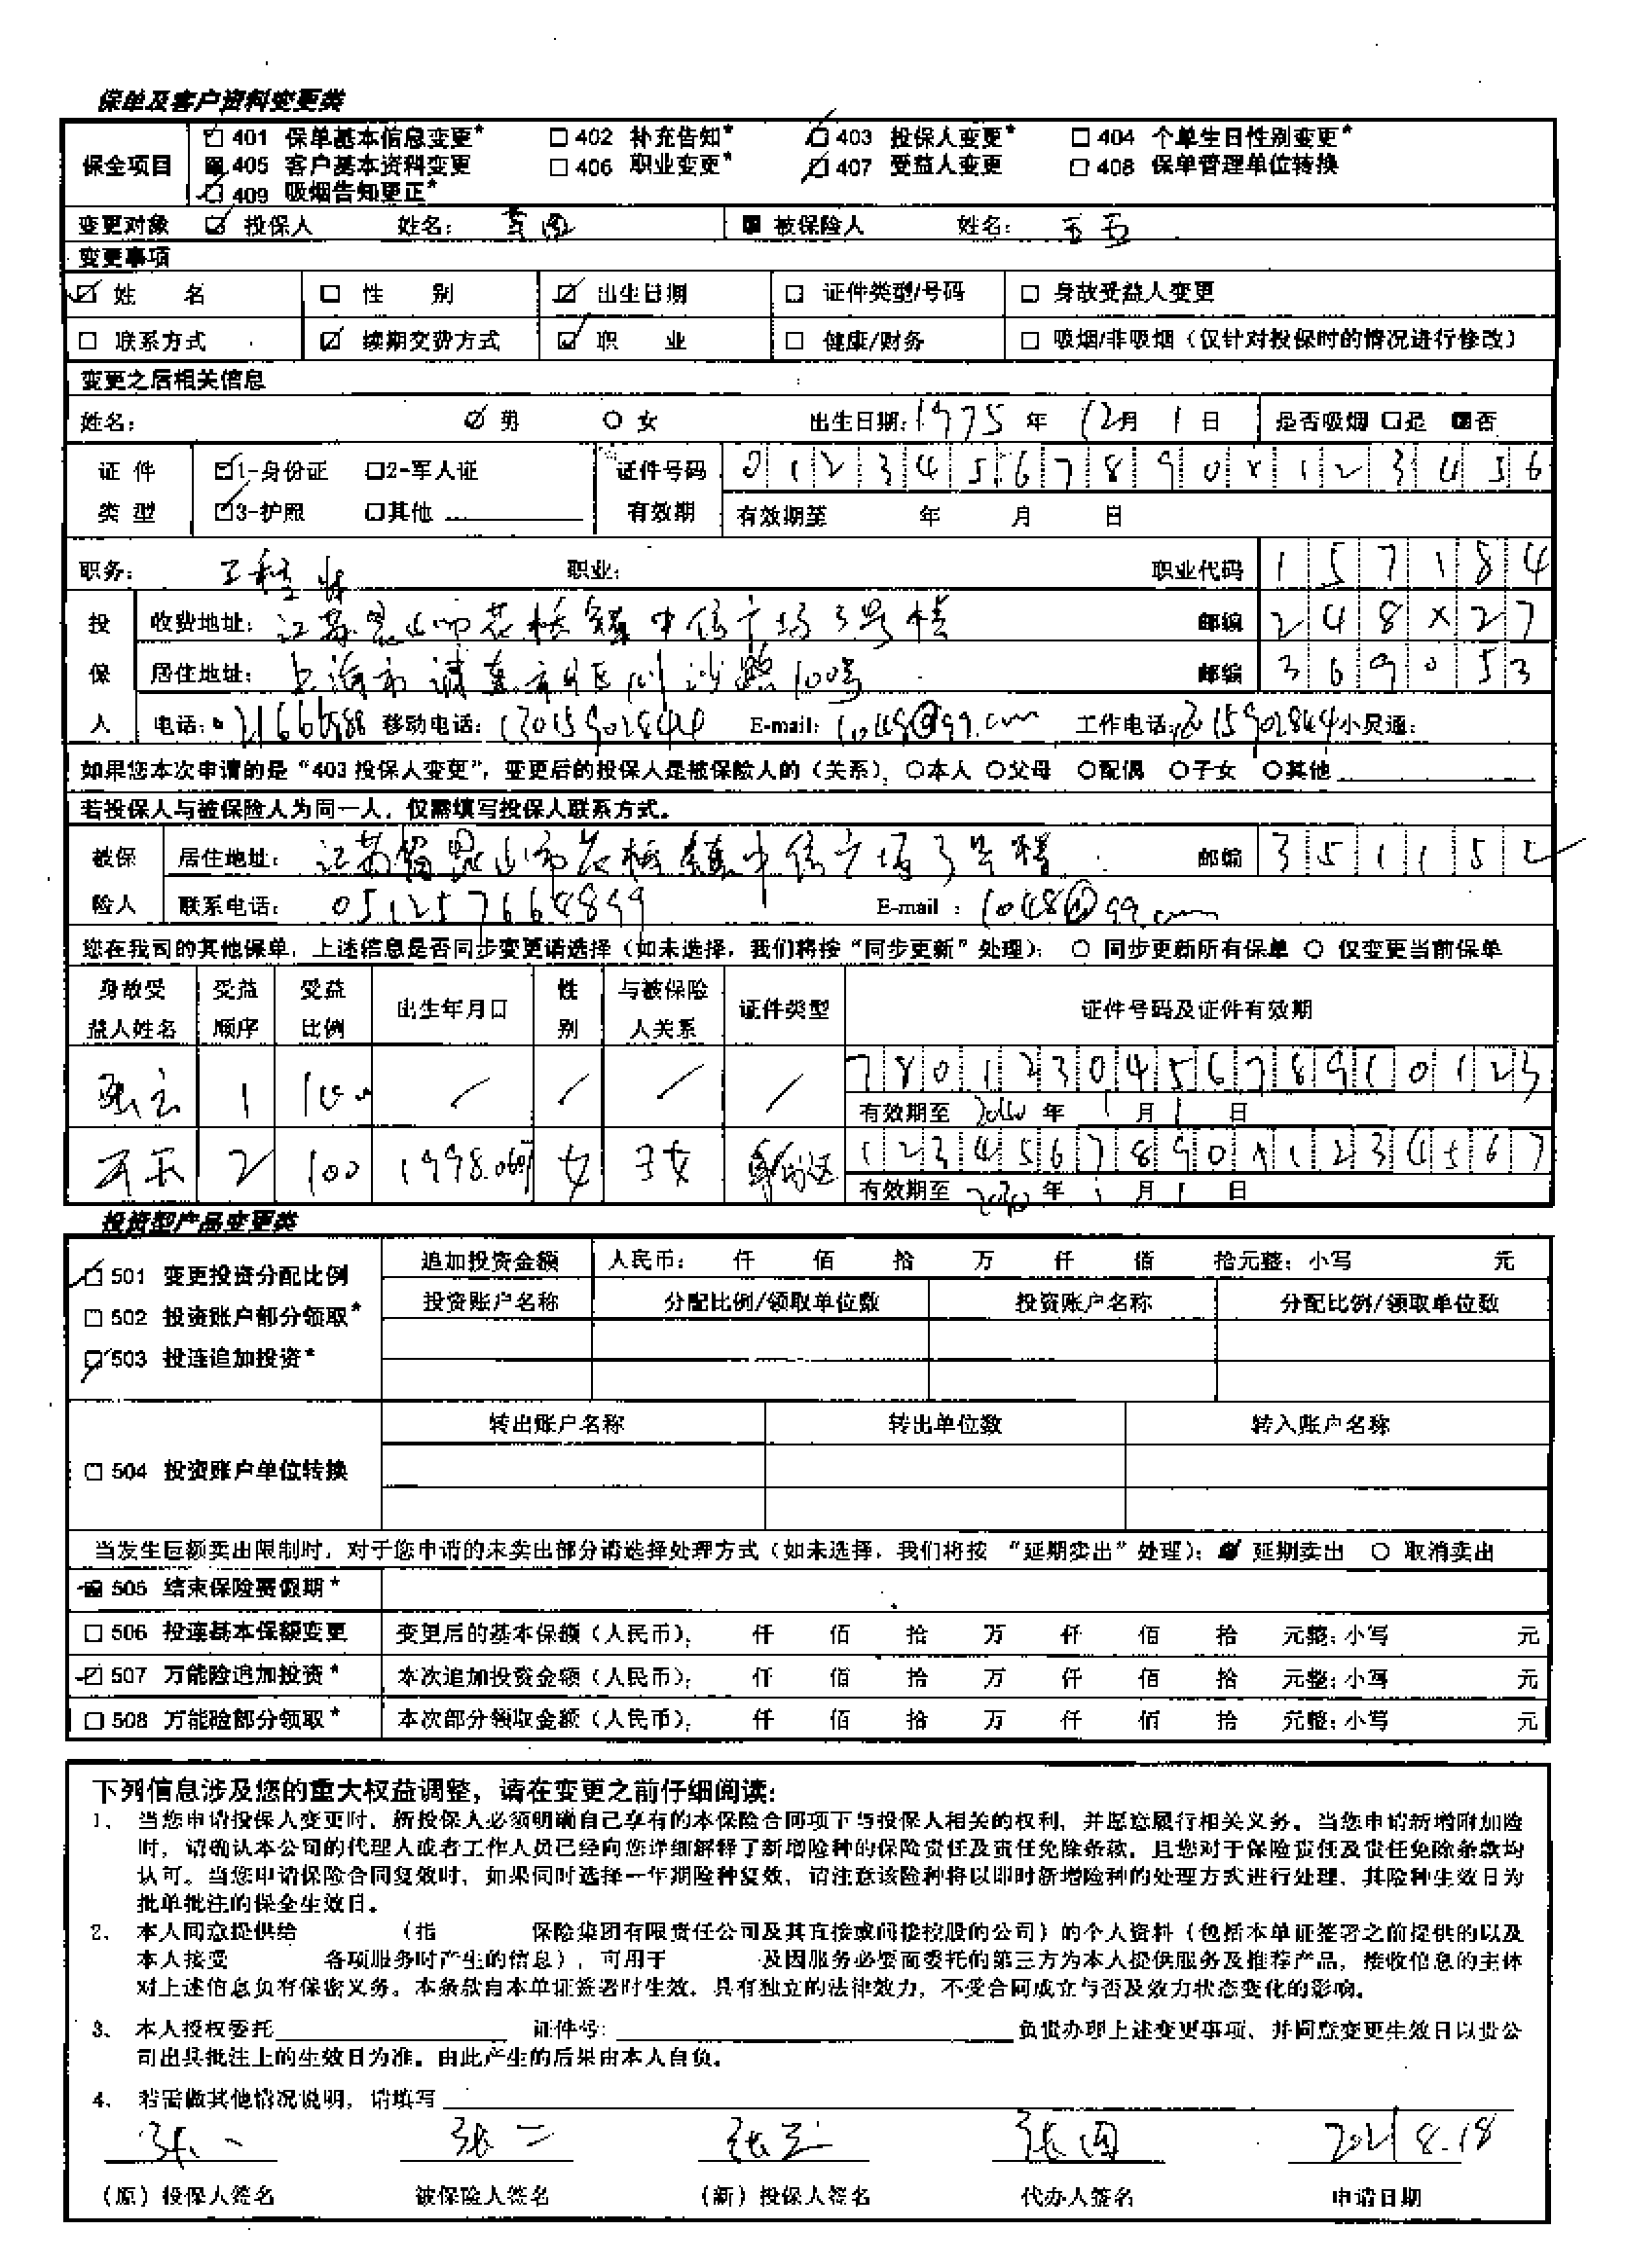 保单及客户资料变更类
保全项目 ☑ 401 保单基本信息变更* □ 402 补充告知* ☑ 403 投保人变更* □ 404 个单生日性别变更*
■ 405 客户基本资料变更 □ 406 职业变更* ☑ 407 受益人变更 □ 408 保单管理单位转换
☑ 409 吸烟告知更正*
变更对象 ☑ 投保人 姓名: ■ 被保险人 姓名: 王五
变更事项
☑ 姓 名 □ 性 别 ☑ 出生日期 □ 证件类型/号码 □ 身故受益人变更
□ 联系方式 ☑ 续期交费方式 ☑ 职 业 □ 健康/财务 □ 吸烟/非吸烟(仅针对投保时的情况进行修改)
变更之后相关信息
姓名: ☑ 男 ○ 女 出生日期: 1975 年 12 月 1 日 是否吸烟 □是 ■否
证件类型 ☑1-身份证 □2-军人证 证件号码 0 1 2 3 4 5 6 7 8 9 0 x 1 2 3 4 5 6
☑3-护照 □其他 有效期 有效期至 年 月 日
职务: 工程师 职业: 职业代码 1 5 7 1 8 4
投保人 收费地址: 江苏昆山市花桥镇中信广场3号楼 邮编 2 4 8 x 2 7
居住地址: 上海市浦东 100号 邮编 3 6 9 0 5 3
电话: 移动电话: E-mail: 工作电话: 小灵通:
如果您本次申请的是“403 投保人变更”,变更后的投保人是被保险人的(关系), ○本人 ○父母 ○配偶 ○子女 ○其他
若投保人与被保险人为同一人,仅需填写投保人联系方式。
被保险人 居住地址: 江苏省昆山市花桥镇中信广场3号楼 邮编 3 5 1 1 5 2
联系电话: E-mail :
您在我司的其他保单,上述信息是否同步变更请选择(如未选择,我们将按“同步更新”处理): ○ 同步更新所有保单 ○ 仅变更当前保单
身故受益人姓名 受益顺序 受益比例 出生年月日 性别 与被保险人关系 证件类型 证件号码及证件有效期
1 100 / / / / 7 8 0 1 2 3 0 4 5 6 7 8 9 1 0 1 2 3
有效期至 年 1 月 1 日
2 100 女 子女 身份证 1 2 3 4 5 6 7 8 9 0 x 1 2 3 4 5 6 7
有效期至 年 1 月 1 日
投资型产品变更类
☑ 501 变更投资分配比例 追加投资金额 人民币: 仟 佰 拾 万 仟 佰 拾元整; 小写 元
□ 502 投资账户部分领取* 投资账户名称 分配比例/领取单位数 投资账户名称 分配比例/领取单位数
☑ 503 投连追加投资*
□ 504 投资账户单位转换 转出账户名称 转出单位数 转入账户名称
当发生巨额卖出限制时,对于您申请的未卖出部分请选择处理方式(如未选择,我们将按 “延期卖出”处理): ● 延期卖出 ○ 取消卖出
■ 505 结束保险费假期*
□ 506 投连基本保额变更 变更后的基本保额(人民币): 仟 佰 拾 万 仟 佰 拾 元整; 小写 元
☑ 507 万能险追加投资* 本次追加投资金额(人民币): 仟 佰 拾 万 仟 佰 拾 元整; 小写 元
□ 508 万能险部分领取* 本次部分领取金额(人民币): 仟 佰 拾 万 仟 佰 拾 元整; 小写 元
下列信息涉及您的重大权益调整,请在变更之前仔细阅读:
1、 当您申请投保人变更时,新投保人必须明确自己享有的本保险合同项下与投保人相关的权利,并愿意履行相关义务。当您申请新增附加险
时,请确认本公司的代理人或者工作人员已经向您详细解释了新增险种的保险责任及责任免除条款,且您对于保险责任及责任免除条款均
认可。当您申请保险合同复效时,如果同时选择一年期险种复效,请注意该险种将以即时新增险种的处理方式进行处理,其险种生效日为
批单批注的保全生效日。
2、 本人同意提供给 (指 保险集团有限责任公司及其直接或间接控股的公司)的个人资料(包括本单证签署之前提供的以及
本人接受 各项服务时产生的信息),可用于 及因服务必要而委托的第三方为本人提供服务及推荐产品,接收信息的主体
对上述信息负有保密义务。本条款自本单证签署时生效,具有独立的法律效力,不受合同成立与否及效力状态变化的影响。
3、 本人授权委托 证件号: 负责办理上述变更事项,并同意变更生效日以贵公
司出具批注上的生效日为准。由此产生的后果由本人自负。
4、 若需做其他情况说明,请填写
张一 张二 张三 张四 2021 8.18
(原)投保人签名 被保险人签名 (新)投保人签名 代办人签名 申请日期